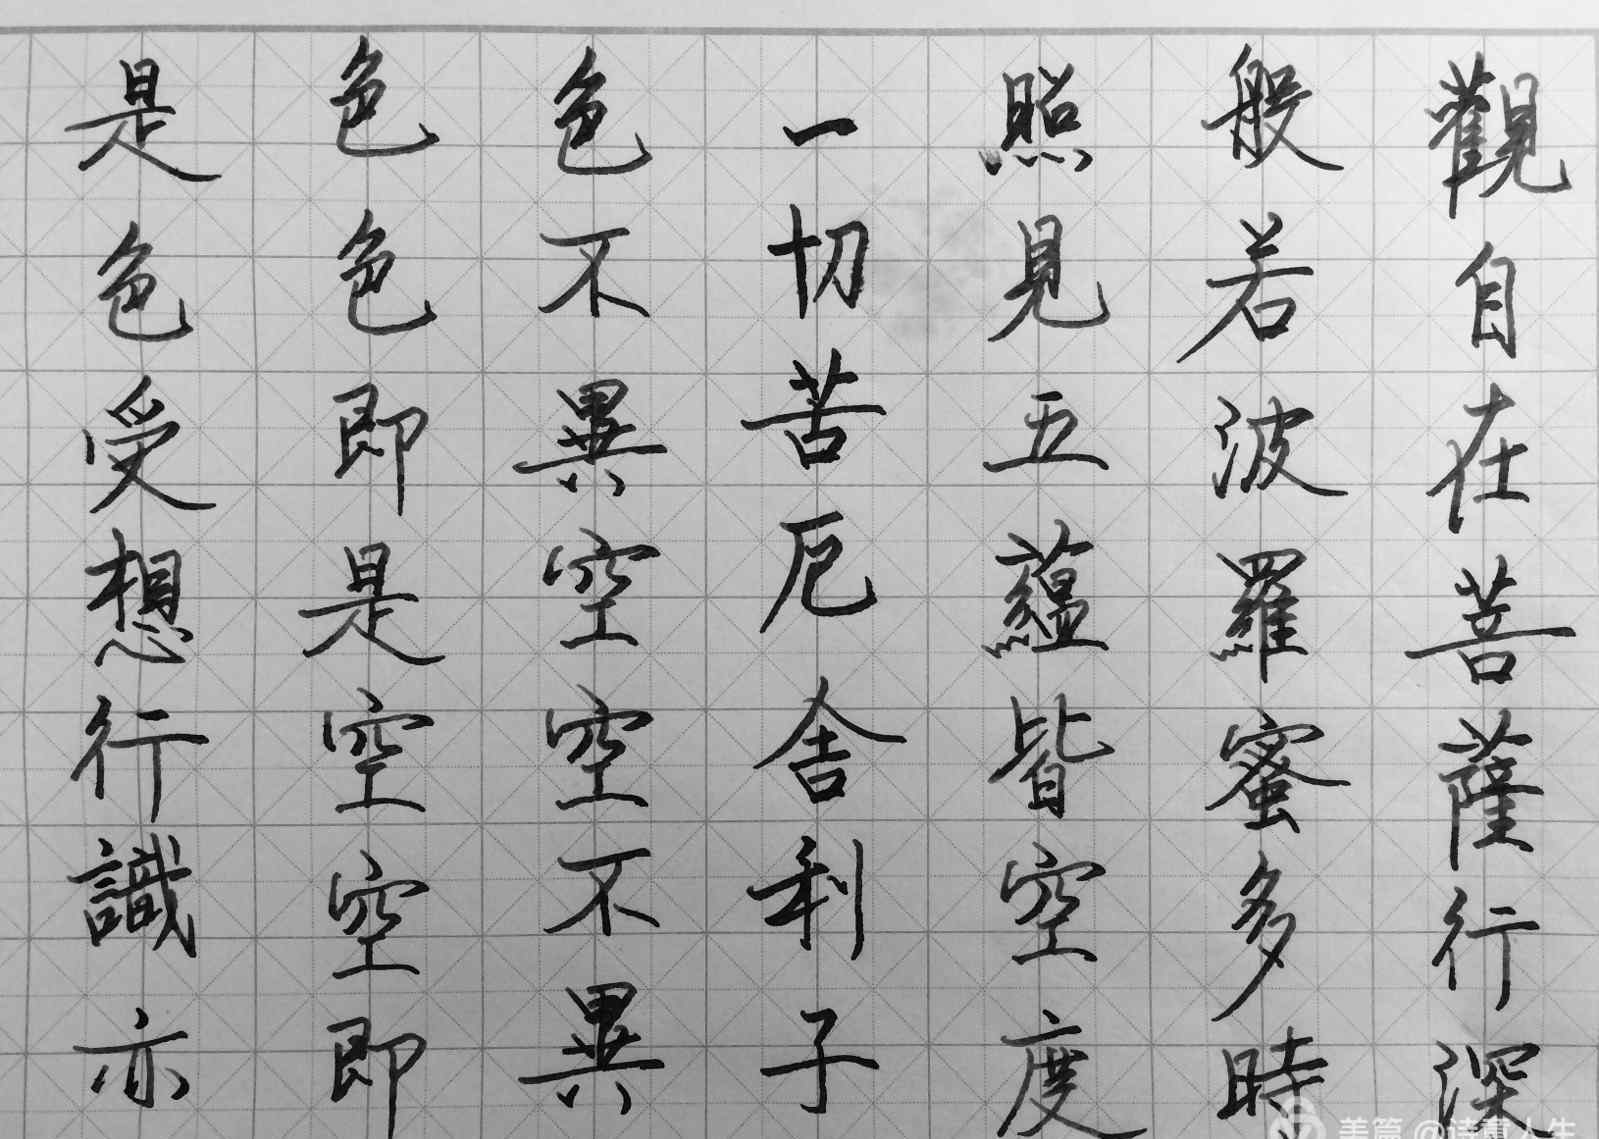 觀自在菩薩行深
般若波羅蜜多時
照見五蘊皆空度
一切苦厄舍利子
色不異空空不異
色色即是空空即
是色受想行識亦
美篇 @诗意人生